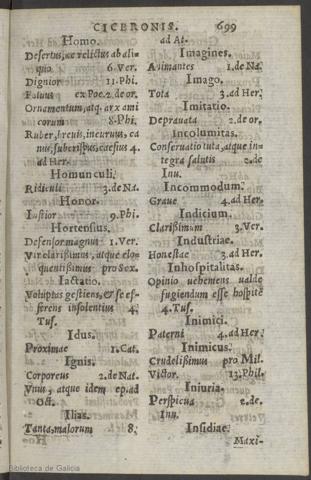 CICERONIS. 699
Homo.
Desertus, ac relictus ab ali
quo 6. Ver.
Dignior 11. Phi.
Fatuus ex Poe. 2. de or.
Ornamentum, atq. arx ami
corum 8. Phi.
Ruber, breuis, incuruus, ca
nus, subcrispus, caesius 4.
ad Her.
Homunculi.
Ridiculi 3. de Na.
Honor.
Iustior 9. Phi.
Hortensius.
Defensor magnus 1. Ver.
Vir clarissimus, atque elo-
quentissimus pro Sex.
Iactatio.
Voluptas gestiens, & se ef-
ferens insolentius 4.
Tus.
Idus.
Proximae 1. Cat.
Ignis.
Corporeus 2. de Nat.
Vnus, atque idem ep. ad
Oct.
Ilias.
Tanta malorum 8.
ad At.
Imagines.
Animantes 1. de Na.
Imago.
Tota 3. ad Her.
Imitatio.
Deprauata 2. de or.
Incolumitas.
Conseruatio tuta, atque in
tegra salutis 2. de
Inu.
Incommodum.
Graue 4. ad Her.
Indicium.
Clarissimum 3. Ver.
Industriae.
Honestae 3. ad Her.
Inhospitalitas.
Opinio uehemens ualde
fugiendum esse hospitē
4. Tus.
Inimici.
Paterni 4. ad Her.
Inimicus.
Crudelissimus pro Mil.
Victor. 13. Phil.
Iniuria.
Perspicua 2. de.
Inu.
Insidiae.
Maxi-
Biblioteca de Galicia